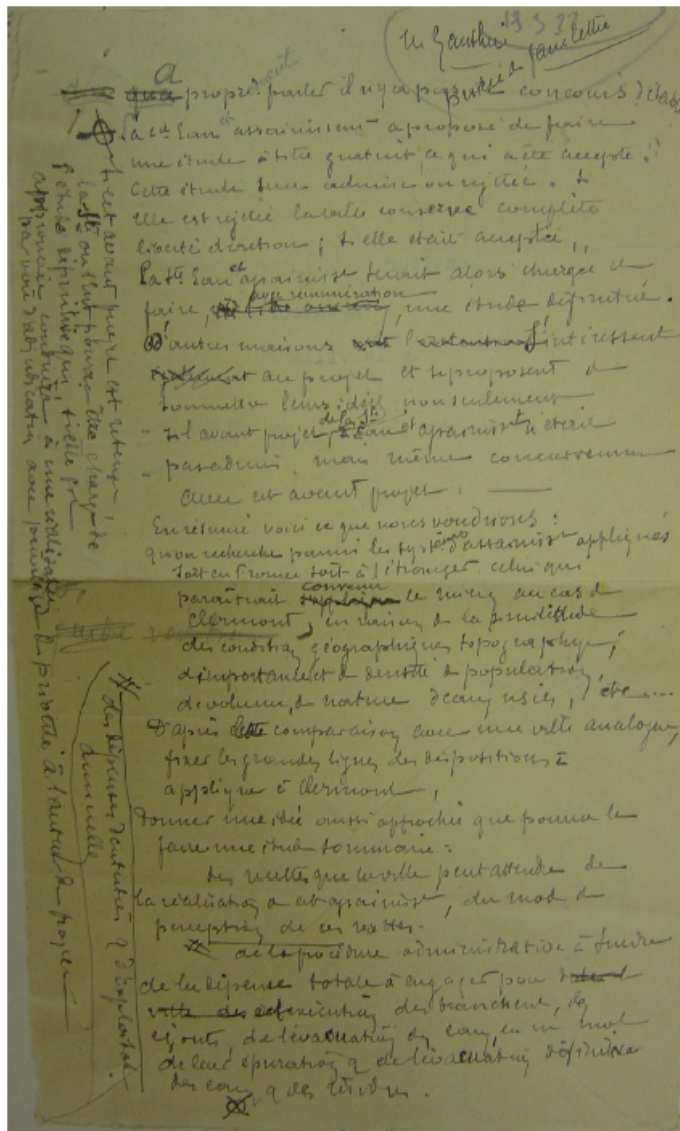 M. Gauthier
13 3 22
pour la lettre
A proprement parler il n'y a pas concours d'idées
La Sté Eau et assainisst a proposé de faire
une étude à titre gratuit ce qui a été accepté.
Cette étude sera admise ou rejetée. Si
elle est rejetée la ville conserve complète
liberté d'action ; si elle était acceptée,
La Sté Eau et assainisst serait alors chargée de
faire, avec rémunération, une étude définitive.
D'autres maisons s'intéressent
au projet et se proposent de
soumettre leurs idées non seulement
si l'avant projet de la Sté Eau et assainisst n'était
pas admis, mais même concurremment
avec cet avant projet.
En résumé voici ce que nous voudrions :
qu'on recherche parmi les systèmes d'assainisst appliqués
soit en France soit à l'étranger celui qui
paraîtrait convenir le mieux au cas de
Clermont, en raison de la similitude
des conditions géographiques, topographiques,
d'importance et de densité de population,
de volume, de nature d'eaux usées, etc....
D'après cette comparaison avec une ville analogue,
fixer les grandes lignes des dispositions à
appliquer à Clermont,
donner une idée aussi approchée que pourra le
faire une étude sommaire :
des recettes que la ville peut attendre de
la réalisation de cet assainisst, du mode de
perception de ces recettes.
de la procédure administrative à suivre
de la dépense totale à engager pour
exécution des branchements, des
égouts, de l'évacuation des eaux, en un mot
de leur épuration & de l'évacuation définitive
des eaux & des résidus.
Si cet avant projet est retenu
la Sté ou l'ent pourra être chargé de
l'étude définitive qui, si elle est
approuvée conduira à une réalisation
par voie d'adjudication avec privilège de priorité à l'auteur du projet
des dépenses d'entretien & d'exploitation
annuelle